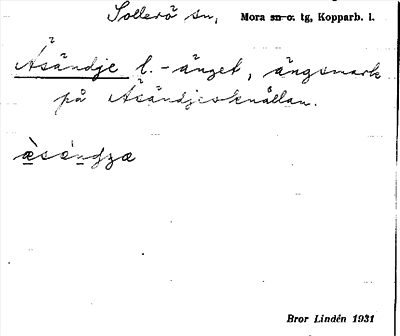 Sollerö sn, Mora sn o. tg, Kopparb. l.
Åsändje l. -änget, ängsmark
på Åsändjesknållan.
Bror Lindén 1931